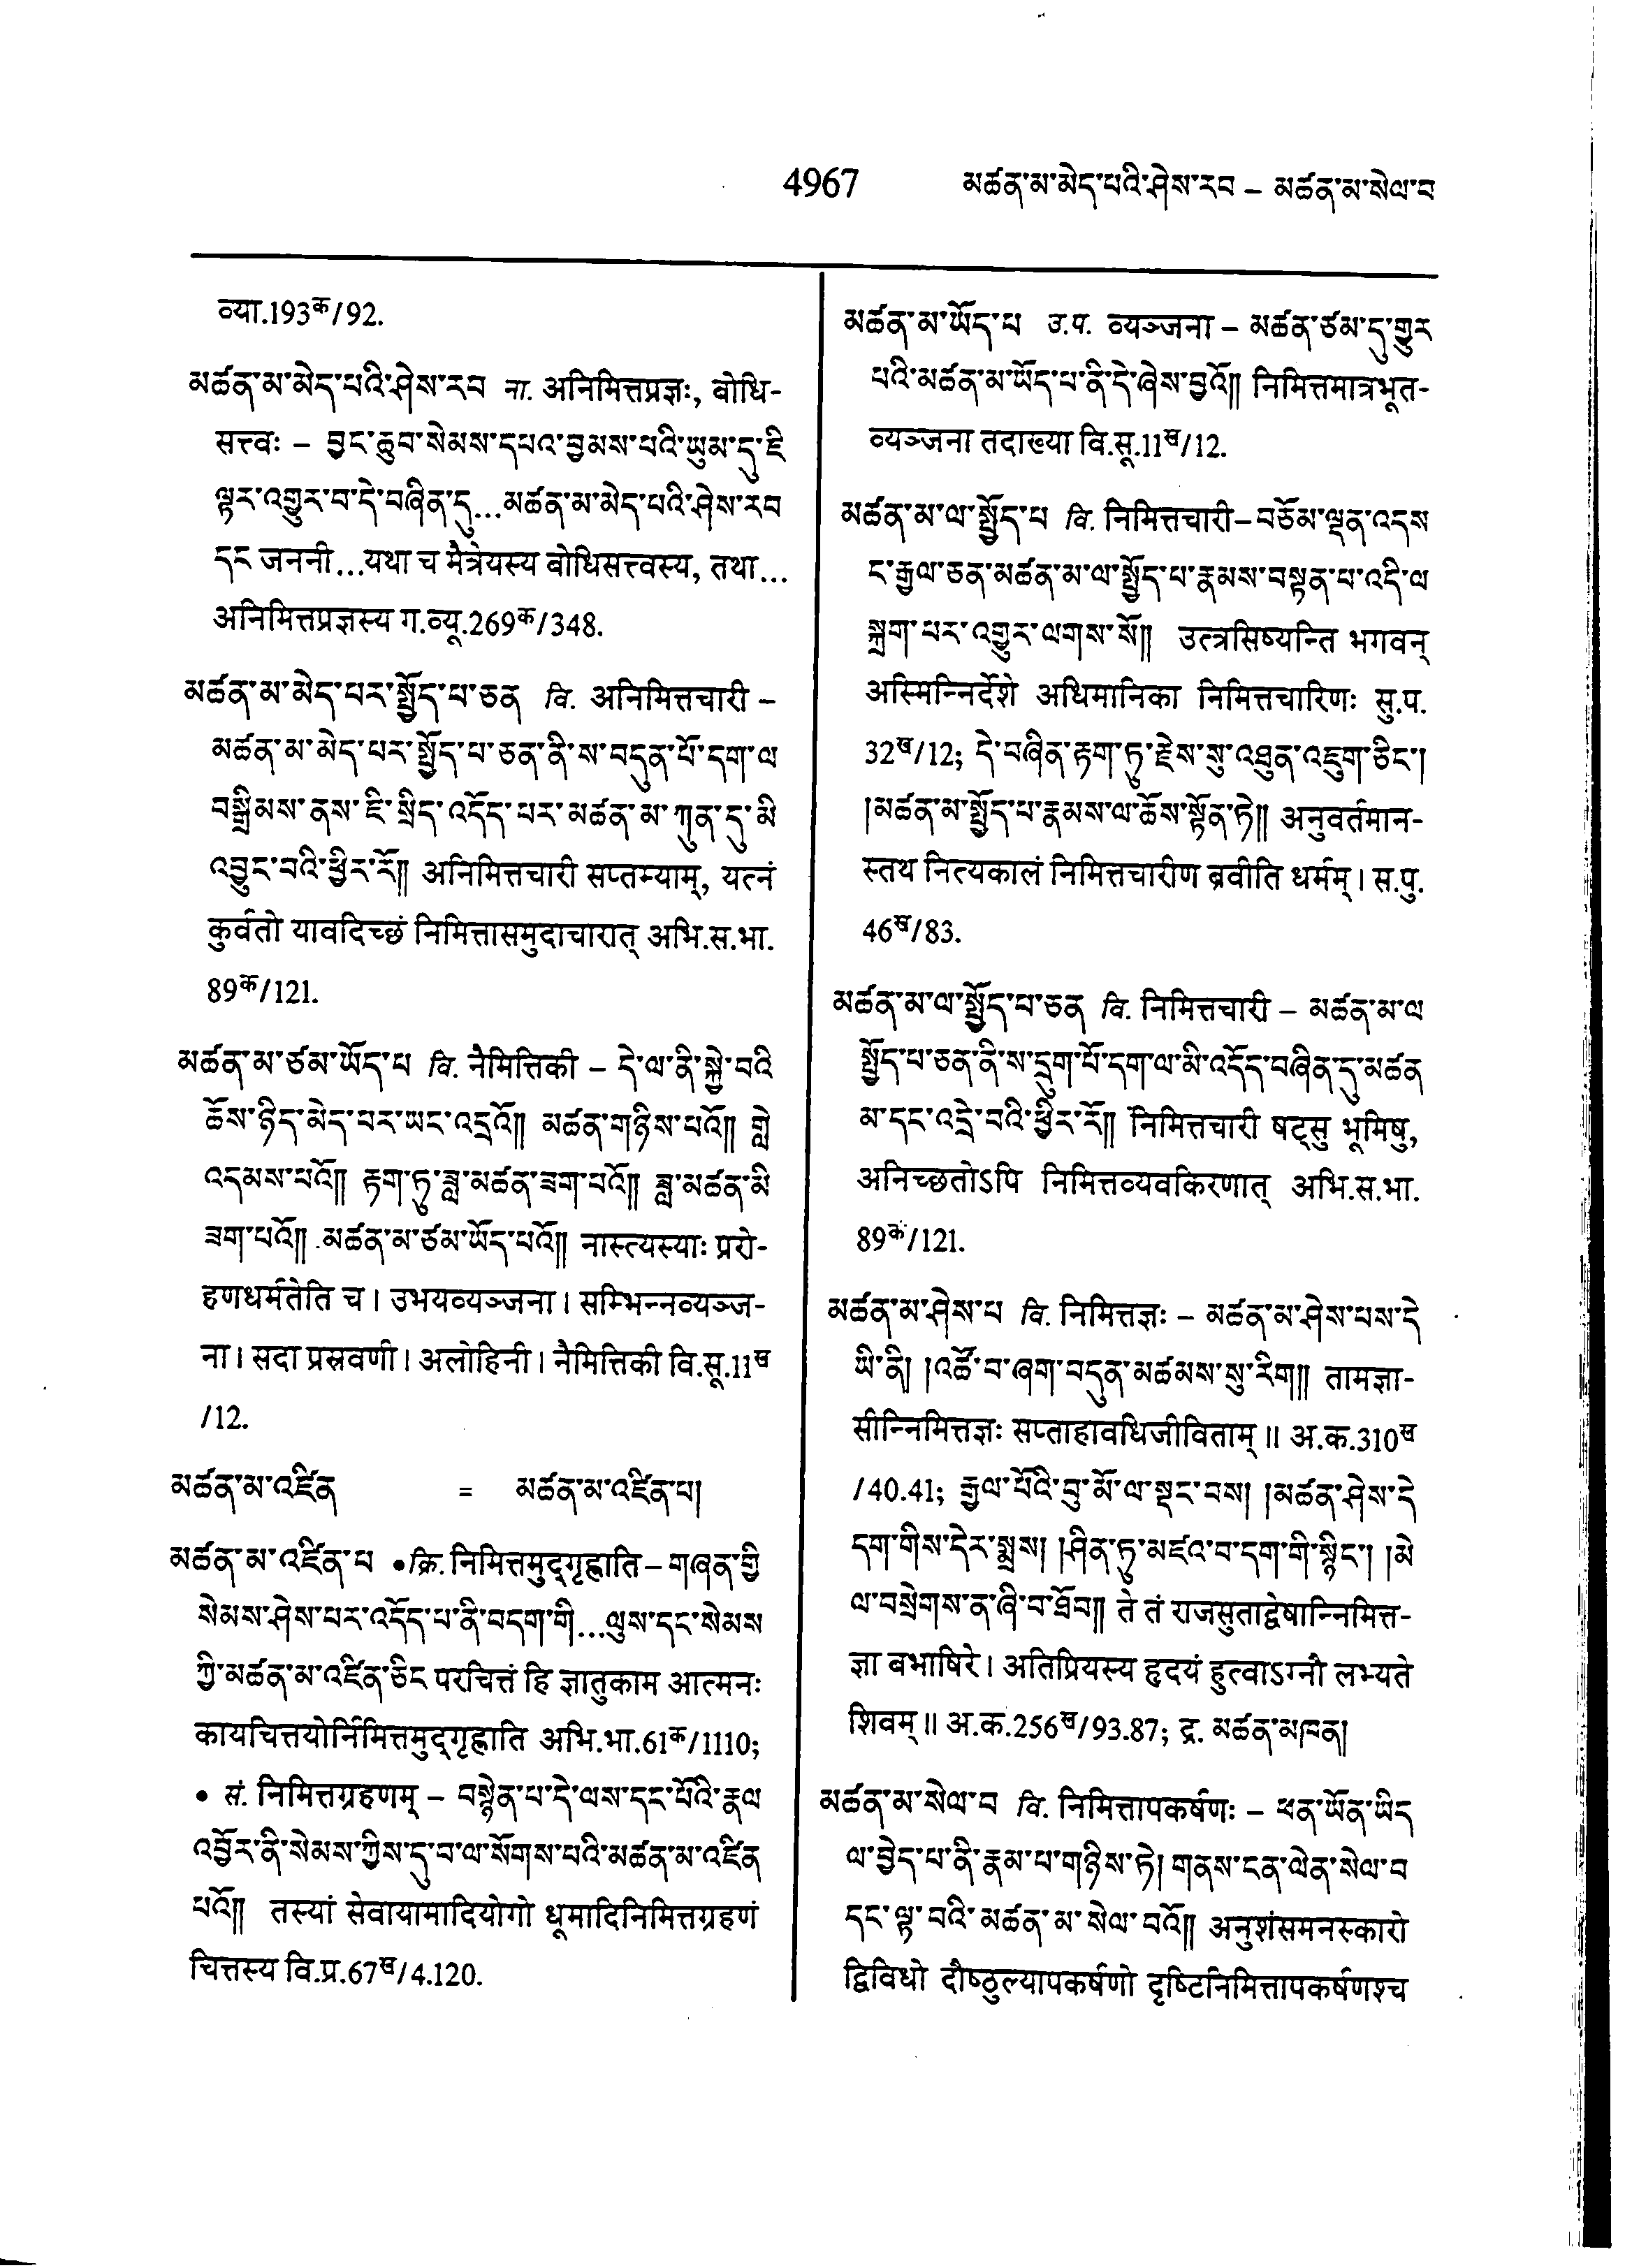 4967 མཚན་མ་མེད་པའི་ཤེས་རབ – མཚན་མ་སེལ་བ
व्या.193क/92.
མཚན་མ་མེད་པའི་ཤེས་རབ ना. अनिमित्तप्रज्ञः, बोधि-
सत्त्वः – བྱང་ཆུབ་སེམས་དཔའ་བྱམས་པའི་ཡུམ་དུ་ཇི
ལྟར་འགྱུར་བ་དེ་བཞིན་དུ...མཚན་མ་མེད་པའི་ཤེས་རབ
དང जननी...यथा च मैत्रेयस्य बोधिसत्त्वस्य, तथा...
अनिमित्तप्रज्ञस्य ग.व्यू.269क/348.
མཚན་མ་མེད་པར་སྤྱོད་པ་ཅན वि. अनिमित्तचारी –
མཚན་མ་མེད་པར་སྤྱོད་པ་ཅན་ནི་ས་བདུན་པོ་དག་ལ
བསྒྲིམས་ནས་ཇི་སྲིད་འདོད་པར་མཚན་མ་ཀུན་དུ་མི
འབྱུང་བའི་ཕྱིར་རོ༎ अनिमित्तचारी सप्तम्याम्, यत्नं
कुर्वतो यावदिच्छं निमित्तासमुदाचारात् अभि.स.भा.
89क/121.
མཚན་མ་ཙམ་ཡོད་པ वि. नैमित्तिकी – དེ་ལ་ནི་སྐྱེ་བའི
ཆོས་ཉིད་མེད་པར་ཡང་འདྲའོ༎ མཚན་གཉིས་པའོ༎ གླེ
འདམས་པའོ༎ རྟག་ཏུ་ཟླ་མཚན་ཟག་པའོ༎ ཟླ་མཚན་མི
ཟག་པའོ༎ མཚན་མ་ཙམ་ཡོད་པའོ༎ नास्त्यस्याः प्ररो-
हणधर्मतेति च। उभयव्यञ्जना। सम्भिन्नव्यञ्ज-
ना। सदा प्रस्रवणी। अलोहिनी। नैमित्तिकी वि.सू.11ख
/12.
མཚན་མ་འཛིན = མཚན་མ་འཛིན་པ།
མཚན་མ་འཛིན་པ •क्रि. निमित्तमुद्गृह्णाति – གཞན་གྱི
སེམས་ཤེས་པར་འདོད་པ་ནི་བདག་གི...ལུས་དང་སེམས
ཀྱི་མཚན་མ་འཛིན་ཅིང परचित्तं हि ज्ञातुकाम आत्मनः
कायचित्तयोर्निमित्तमुद्गृह्णाति अभि.भा.61क/1110;
• सं. निमित्तग्रहणम् – བསྙེན་པ་དེ་ལས་དང་པོའི་རྣལ
འབྱོར་ནི་སེམས་ཀྱིས་དུ་བ་ལ་སོགས་པའི་མཚན་མ་འཛིན
པའོ༎ तस्यां सेवायामादियोगो धूमादिनिमित्तग्रहणं
चित्तस्य वि.प्र.67ख/4.120.
མཚན་མ་ཡོད་པ उ.प. व्यञ्जना – མཚན་ཙམ་དུ་གྱུར
པའི་མཚན་མ་ཡོད་པ་ནི་དེ་ཞེས་བྱའོ༎ निमित्तमात्रभूत-
व्यञ्जना तदाख्या वि.सू.11ख/12.
མཚན་མ་ལ་སྤྱོད་པ वि. निमित्तचारी–བཅོམ་ལྡན་འདས
ང་རྒྱལ་ཅན་མཚན་མ་ལ་སྤྱོད་པ་རྣམས་བསྟན་པ་འདི་ལ
སྐྲག་པར་འགྱུར་ལགས་སོ༎ उत्त्रसिष्यन्ति भगवन्
अस्मिन्निर्देशे अधिमानिका निमित्तचारिणः सु.प.
32ख/12; དེ་བཞིན་རྟག་ཏུ་རྗེས་སུ་འཐུན་འཇུག་ཅིང་།
།མཚན་མ་སྤྱོད་པ་རྣམས་ལ་ཆོས་སྟོན་ཏེ༎ अनुवर्तमान-
स्तथ नित्यकालं निमित्तचारीण ब्रवीति धर्मम्। स.पु.
46ख/83.
མཚན་མ་ལ་སྤྱོད་པ་ཅན वि. निमित्तचारी – མཚན་མ་ལ
སྤྱོད་པ་ཅན་ནི་ས་དྲུག་པོ་དག་ལ་མི་འདོད་བཞིན་དུ་མཚན
མ་དང་འདྲེ་བའི་ཕྱིར་རོ༎ निमित्तचारी षट्सु भूमिषु,
अनिच्छतोऽपि निमित्तव्यवकिरणात् अभि.स.भा.
89क/121.
མཚན་མ་ཤེས་པ वि. निमित्तज्ञः – མཚན་མ་ཤེས་པས་དེ
ཡི་ནི། །འཚོ་བ་ཞག་བདུན་མཚམས་སུ་རིག༎ तामज्ञा-
सीन्निमित्तज्ञः सप्ताहावधिजीविताम्॥ अ.क.310ख
/40.41; རྒྱལ་པོའི་བུ་མོ་ལ་སྡང་བས། །མཚན་ཤེས་དེ
དག་གིས་དེར་སྨྲས། །ཤིན་ཏུ་མཛའ་བ་དག་གི་སྙིང་། །མེ
ལ་བསྲེགས་ན་ཞི་བ་ཐོབ༎ ते तं राजसुताद्वेषान्निमित्त-
ज्ञा बभाषिरे। अतिप्रियस्य हृदयं हुत्वाऽग्नौ लभ्यते
शिवम्॥ अ.क.256ख/93.87; द्र. མཚན་མཁན།
མཚན་མ་སེལ་བ वि. निमित्तापकर्षणः – ཕན་ཡོན་ཡིད
ལ་བྱེད་པ་ནི་རྣམ་པ་གཉིས་ཏེ། གནས་ངན་ལེན་སེལ་བ
དང་ལྟ་བའི་མཚན་མ་སེལ་བའོ༎ अनुशंसमनस्कारो
द्विविधो दौष्ठुल्यापकर्षणो दृष्टिनिमित्तापकर्षणश्च